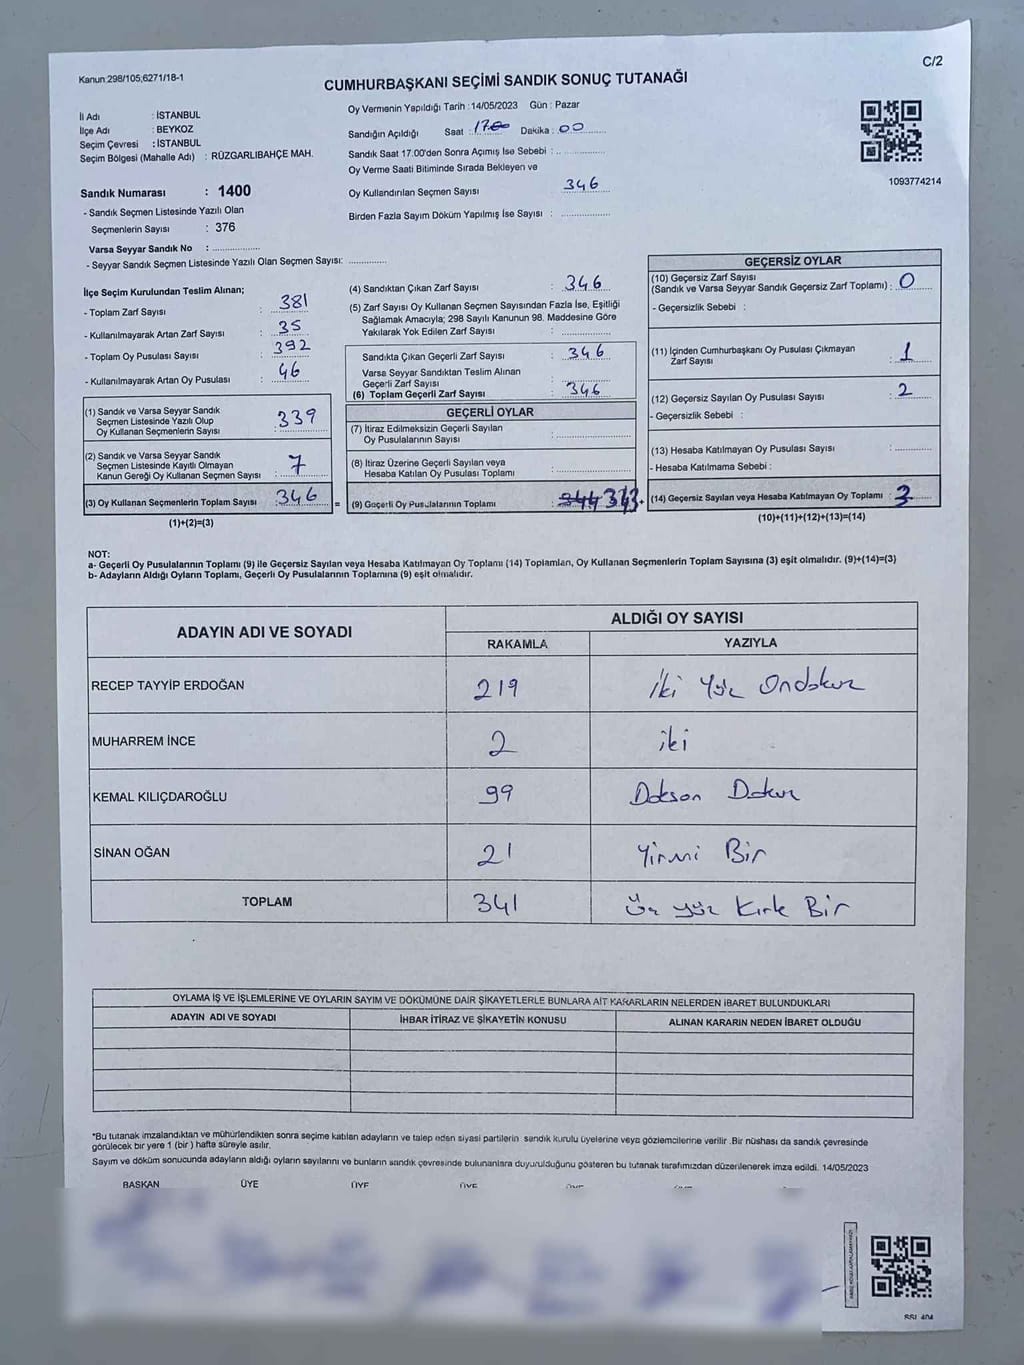 Kanun:298/105;6271/18-1
C/2
CUMHURBAŞKANI SEÇİMİ SANDIK SONUÇ TUTANAĞI
İl Adı : İSTANBUL
İlçe Adı : BEYKOZ
Seçim Çevresi : İSTANBUL
Seçim Bölgesi (Mahalle Adı) : RÜZGARLIBAHÇE MAH.
Sandık Numarası : 1400
- Sandık Seçmen Listesinde Yazılı Olan
Seçmenlerin Sayısı : 376
Varsa Seyyar Sandık No :
- Seyyar Sandık Seçmen Listesinde Yazılı Olan Seçmen Sayısı:
Oy Vermenin Yapıldığı Tarih :14/05/2023 Gün : Pazar
Sandığın Açıldığı Saat : 17.00 Dakika : 00
Sandık Saat 17.00'den Sonra Açımış İse Sebebi :
Oy Verme Saati Bitiminde Sırada Bekleyen ve
Oy Kullandırılan Seçmen Sayısı 346
Birden Fazla Sayım Döküm Yapılmış İse Sayısı :
1093774214
İlçe Seçim Kurulundan Teslim Alınan;
- Toplam Zarf Sayısı : 381
- Kullanılmayarak Artan Zarf Sayısı : 35
- Toplam Oy Pusulası Sayısı : 392
- Kullanılmayarak Artan Oy Pusulası : 46
(1) Sandık ve Varsa Seyyar Sandık
Seçmen Listesinde Yazılı Olup
Oy Kullanan Seçmenlerin Sayısı : 339
(2) Sandık ve Varsa Seyyar Sandık
Seçmen Listesinde Kayıtlı Olmayan
Kanun Gereği Oy Kullanan Seçmen Sayısı : 7
(3) Oy Kullanan Seçmenlerin Toplam Sayısı : 346 =
(1)+(2)=(3)
(4) Sandıktan Çıkan Zarf Sayısı : 346
(5) Zarf Sayısı Oy Kullanan Seçmen Sayısından Fazla İse, Eşitliği
Sağlamak Amacıyla; 298 Sayılı Kanunun 98. Maddesine Göre
Yakılarak Yok Edilen Zarf Sayısı :
Sandıkta Çıkan Geçerli Zarf Sayısı : 346
Varsa Seyyar Sandıktan Teslim Alınan
Geçerli Zarf Sayısı :
(6) Toplam Geçerli Zarf Sayısı : 346
GEÇERLİ OYLAR
(7) İtiraz Edilmeksizin Geçerli Sayılan
Oy Pusulalarının Sayısı :
(8) İtiraz Üzerine Geçerli Sayılan veya
Hesaba Katılan Oy Pusulası Toplamı :
(9) Geçerli Oy Pusulalarının Toplamı : 344 343.
GEÇERSİZ OYLAR
(10) Geçersiz Zarf Sayısı
(Sandık ve Varsa Seyyar Sandık Geçersiz Zarf Toplamı) : 0
- Geçersizlik Sebebi :
(11) İçinden Cumhurbaşkanı Oy Pusulası Çıkmayan
Zarf Sayısı : 1
(12) Geçersiz Sayılan Oy Pusulası Sayısı : 2
- Geçersizlik Sebebi :
(13) Hesaba Katılmayan Oy Pusulası Sayısı :
- Hesaba Katılmama Sebebi :
(14) Geçersiz Sayılan veya Hesaba Katılmayan Oy Toplamı : 3
(10)+(11)+(12)+(13)=(14)
NOT:
a- Geçerli Oy Pusulalarının Toplamı (9) ile Geçersiz Sayılan veya Hesaba Katılmayan Oy Toplamı (14) Toplamları, Oy Kullanan Seçmenlerin Toplam Sayısına (3) eşit olmalıdır. (9)+(14)=(3)
b- Adayların Aldığı Oyların Toplamı, Geçerli Oy Pusulalarının Toplamına (9) eşit olmalıdır.
ADAYIN ADI VE SOYADI
ALDIĞI OY SAYISI
RAKAMLA YAZIYLA
RECEP TAYYİP ERDOĞAN 219 iki Yüz Ondokuz
MUHARREM İNCE 2 iki
KEMAL KILIÇDAROĞLU 99 Doksan Dokuz
SİNAN OĞAN 21 Yirmi Bir
TOPLAM 341 Üç yüz Kırk Bir
OYLAMA İŞ VE İŞLEMLERİNE VE OYLARIN SAYIM VE DÖKÜMÜNE DAİR ŞİKAYETLERLE BUNLARA AİT KARARLARIN NELERDEN İBARET BULUNDUKLARI
ADAYIN ADI VE SOYADI İHBAR İTİRAZ VE ŞİKAYETİN KONUSU ALINAN KARARIN NEDEN İBARET OLDUĞU
*Bu tutanak imzalandıktan ve mühürlendikten sonra seçime katılan adayların ve talep eden siyasi partilerin sandık kurulu üyelerine veya gözlemcilerine verilir .Bir nüshası da sandık çevresinde
görülecek bir yere 1 (bir) hafta süreyle asılır.
Sayım ve döküm sonucunda adayların aldığı oyların sayılarını ve bunların sandık çevresinde bulunanlara duyurulduğunu gösteren bu tutanak tarafımızdan düzenlenerek imza edildi. 14/05/2023
BAŞKAN ÜYE ÜYE ÜYE